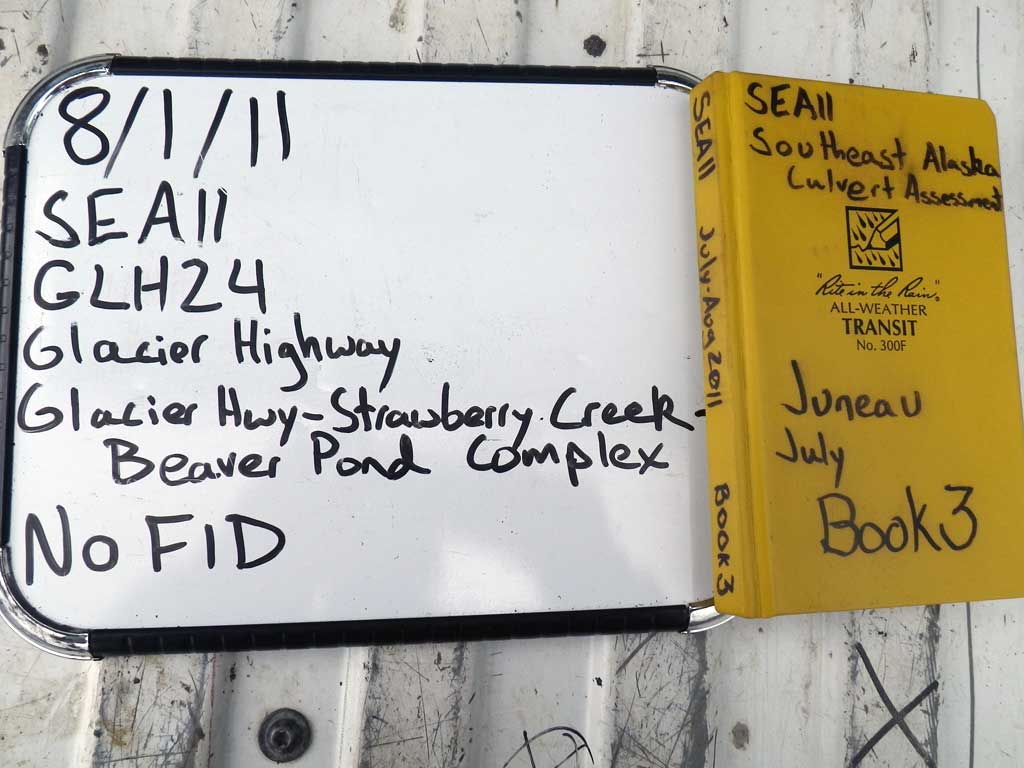 8/1/11
SEA11
GLH24
Glacier Highway
Glacier Hwy-Strawberry Creek-
Beaver Pond Complex
No FID
SEA11 July-Aug 2011 Book 3
SEA11
Southeast Alaska
Culvert Assessment
"Rite in the Rain"
ALL-WEATHER
TRANSIT
No. 300F
Juneau
July
Book 3